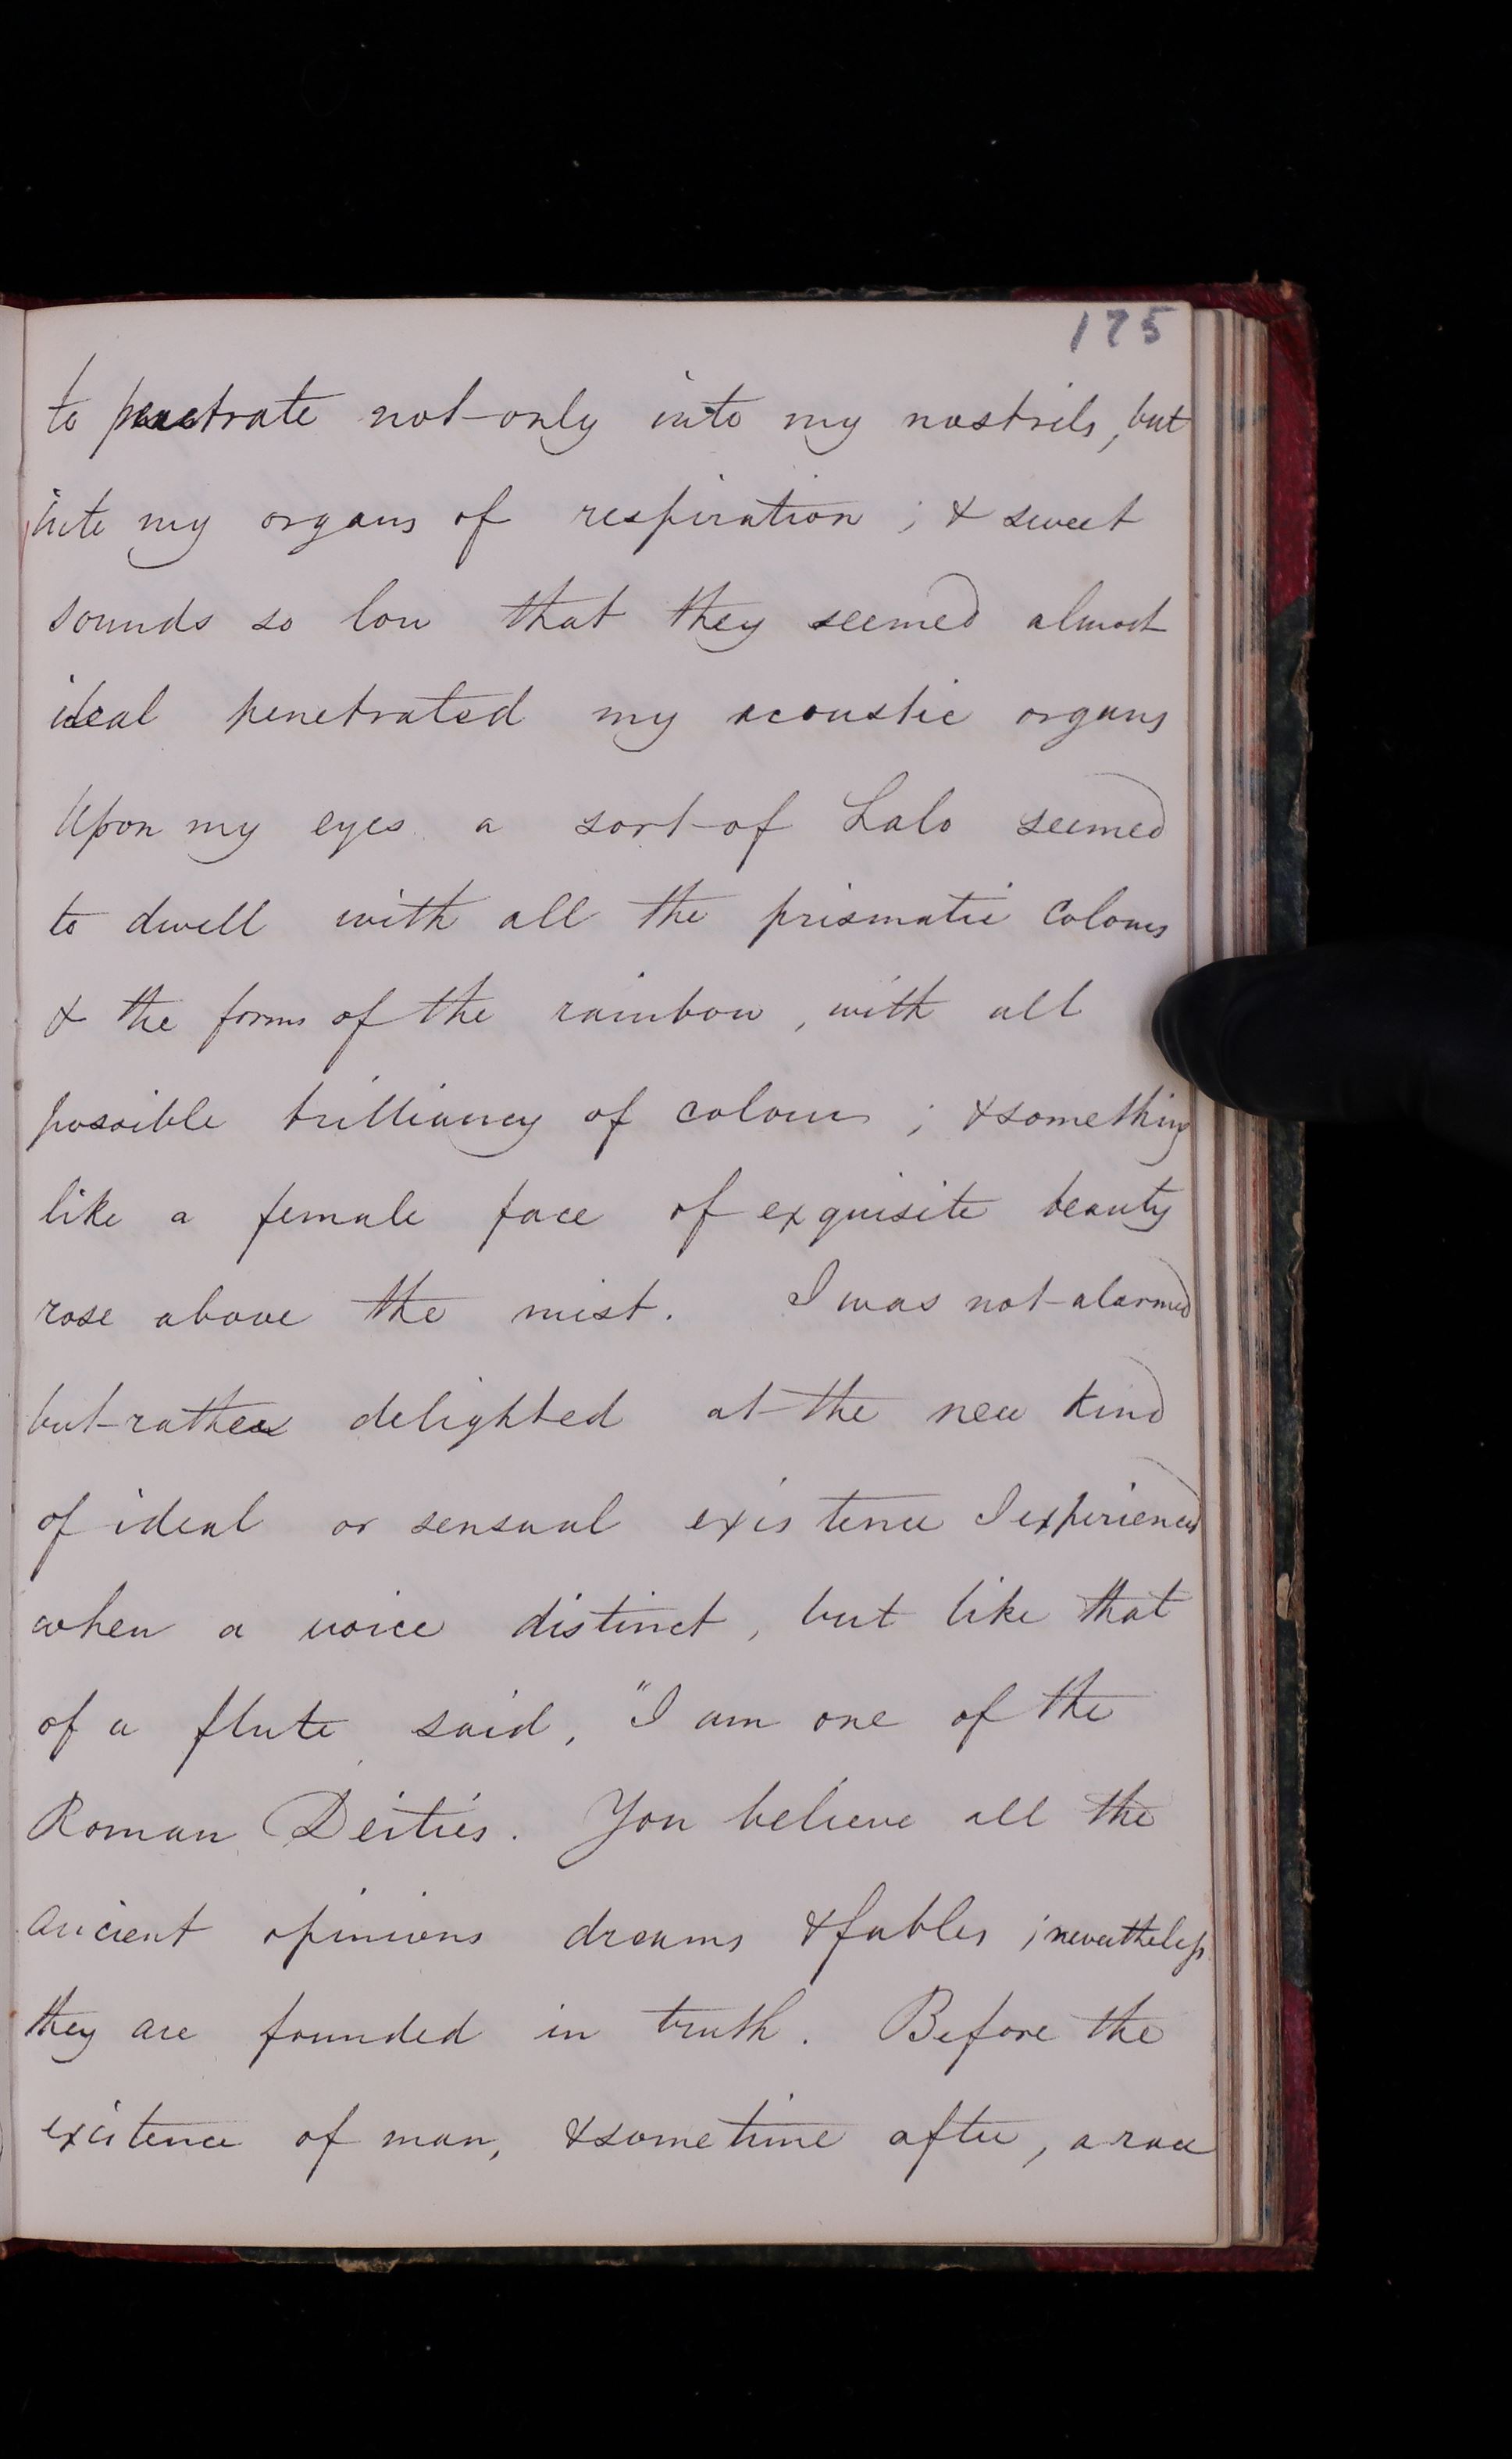 175
to penetrate not only into my nostrils, but
into my organs of respiration ; & sweet
sounds so low that they seemed almost
ideal penetrated my acoustic organs
Upon my eyes a sort of Lalo seemed
to dwell with all the prismatic Colours
& the forms of the rainbow, with all
possible brilliancy of colour ; & something
like a female face of exquisite beauty
rose above the mist. I was not alarmed
but rather delighted at the new kind
of ideal or sensual existence I experienced
when a voice distinct, but like that
of a flute said, "I am one of the
Roman Deities. You believe all the
ancient opinions dreams & fables ; nevertheless
they are founded in truth. Before the
existence of man, & some time after, a race